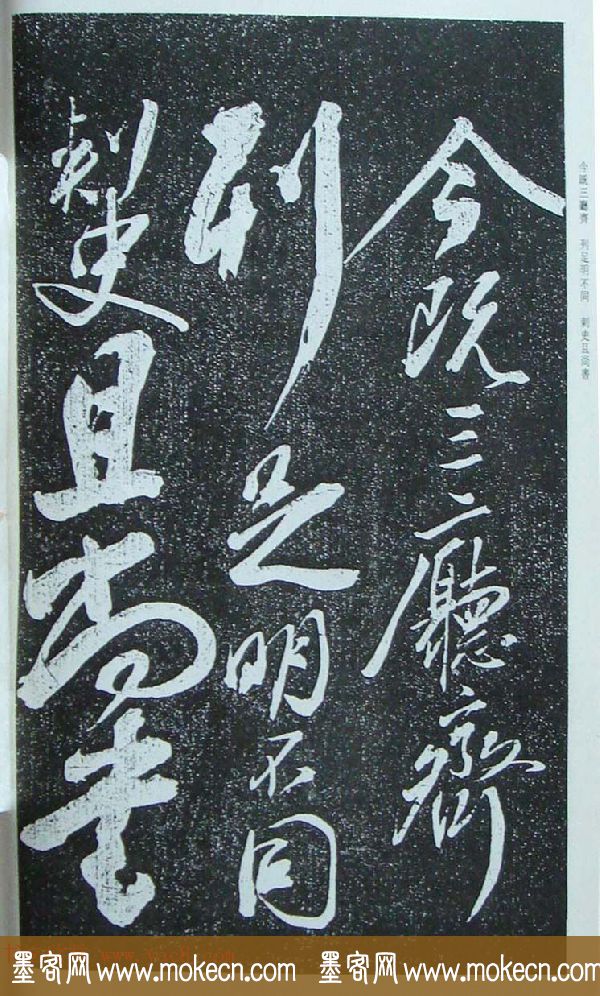 今既三廳齊
列足明不同
刺史且尚書
今既三廳齊　列足明不同　刺史且尚書
墨客网 www.mokecn.com 墨客网 www.mokecn.com